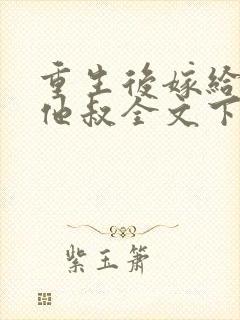 重生後嫁給
他叔全文下
紫玉簫